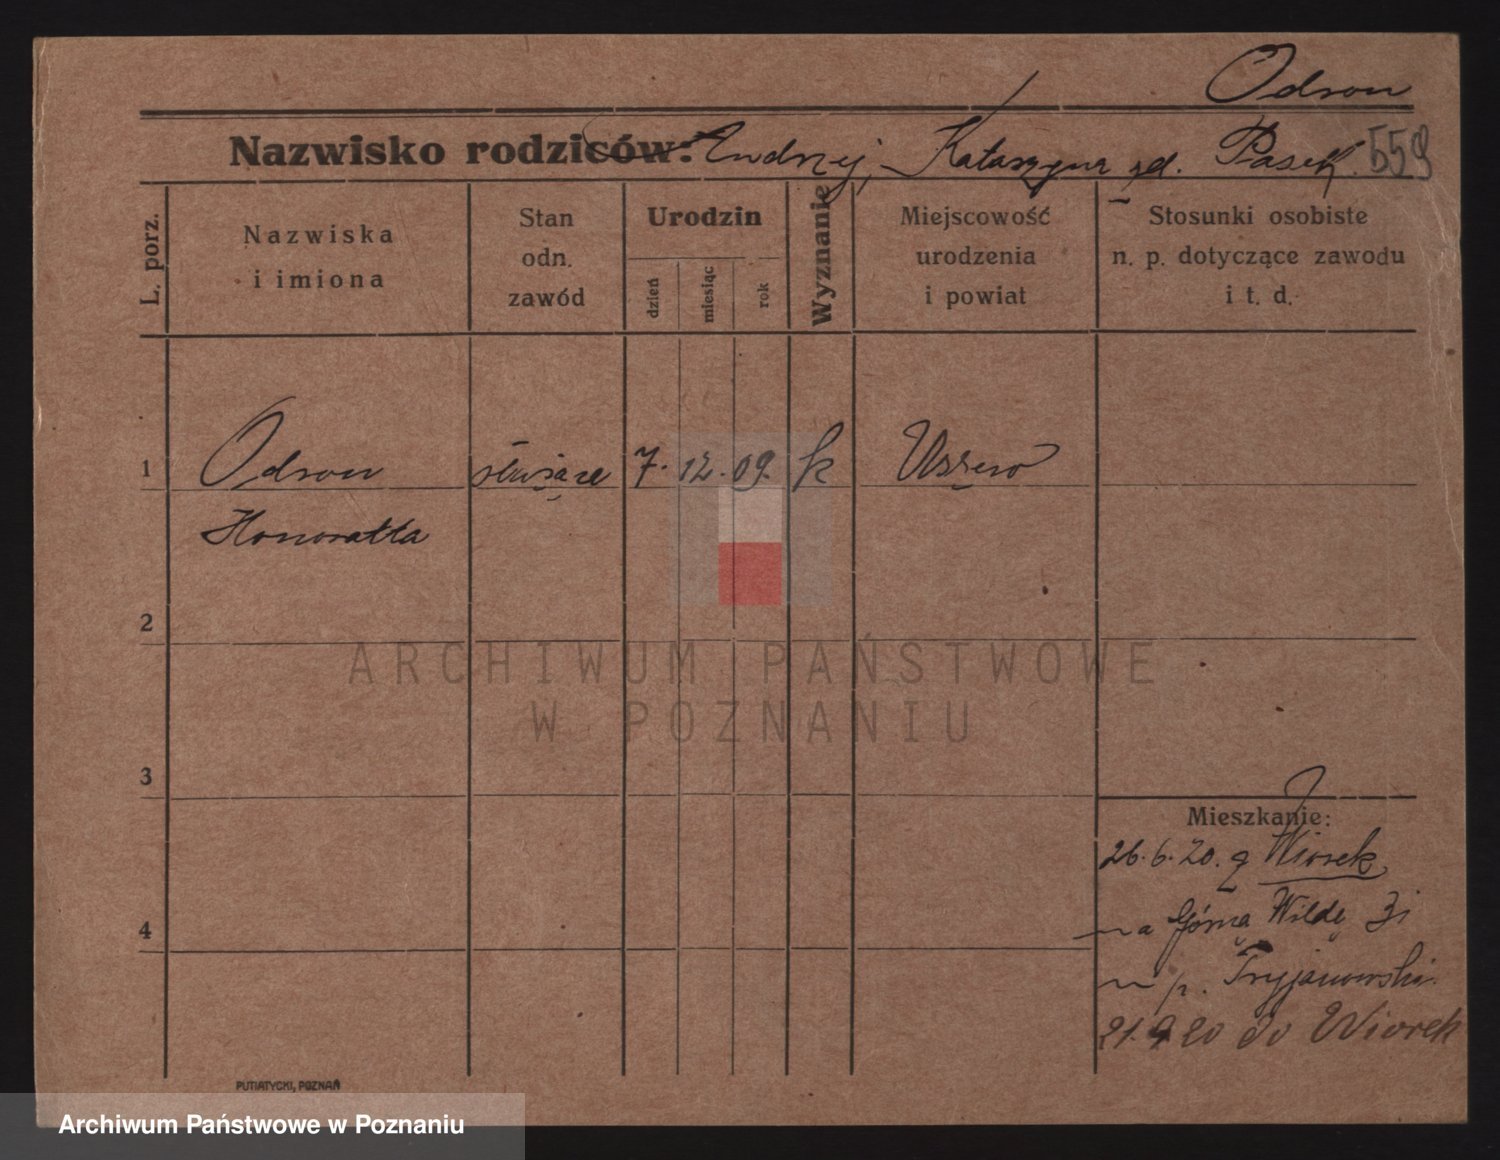 Odrow
Nazwisko rodziców: Endrzej, Katarzyna zd. Pasek. 559
L. porz.
Nazwiska
i imiona
Stan
odn.
zawód
Urodzin
dzień
miesiąc
rok
Wyznanie
Miejscowość
urodzenia
i powiat
Stosunki osobiste
n. p. dotyczące zawodu
i t. d.
1 Odrow służąca 7. 12. 09. k
Honoratta
2
3
4
Mieszkanie:
26.6.20. z Wiorek
na Górna Wildę 31
p. Tryjanowski
21.9 20 do Wiorek
PUTIATYCKI, POZNAŃ
ARCHIWUM PAŃSTWOWE
W POZNANIU
Archiwum Państwowe w Poznaniu